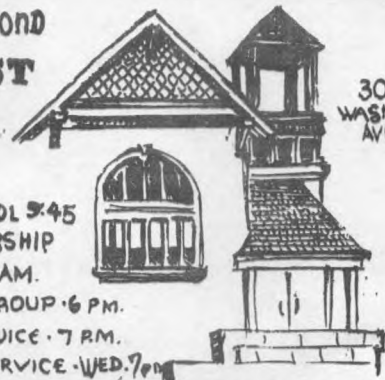 OND
ST
30
WASH
AV
OL 9:45
RSHIP
AM.
ROUP · 6 PM.
VICE · 7 P.M.
ERVICE · WED. 7PM